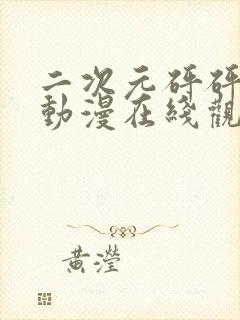 二次元砰砰
動漫在綫觀
黃瀅